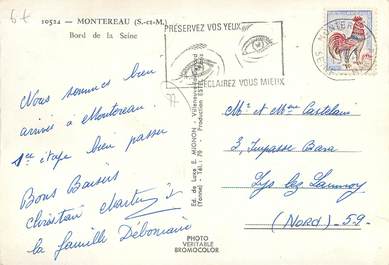 6f
10524 — MONTEREAU (S.-et-M.)
Bord de la Seine
PRÉSERVEZ VOS YEUX
ÉCLAIREZ VOUS MIEUX
MONTEREAU
Nous sommes bien
arrivés à Montereau.
1ère étape bien passée
Bons Baisers
Christian
la famille
Ed. de Luxe E. MIGNON - Villeneuve
(Yonne) - Tél. : 79 - Production ESTEL
PHOTO
VERITABLE
BROMOCOLOR
Mr et Mme Castelain
3, Impasse Bara
Lys lez Lannoy
(Nord) - 59 -